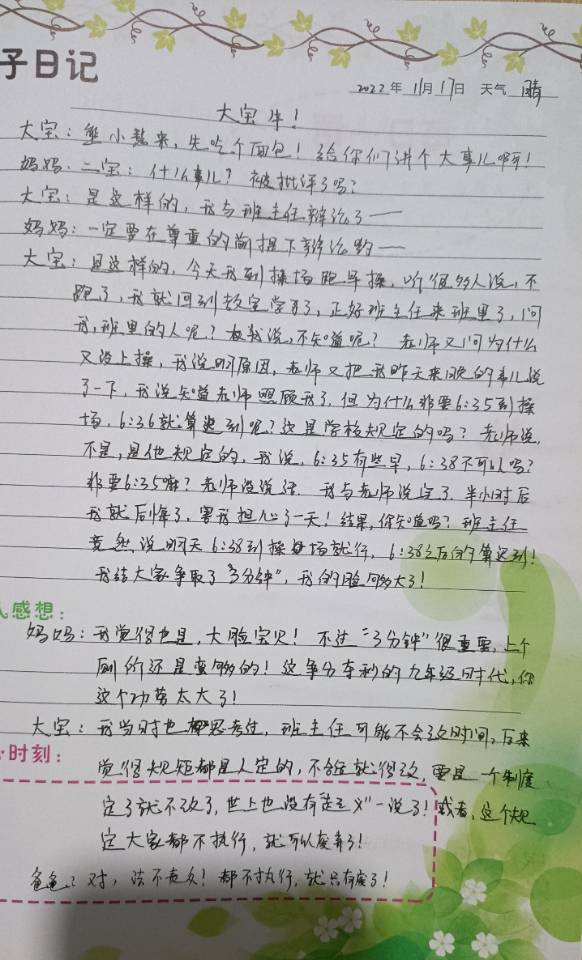 子日记
2022年11月17日 天气 晴
大宝牛!
大宝:先吃个面包!给你们讲个大事儿啊!
妈妈:二宝:什么事儿?被批评了吗?
大宝:是这样的,我与班主任辩论了——
妈妈:一定要在尊重的前提下辩论哟——
大宝:是这样的,今天我到操场跑早操,听很多人说,不
跑了,我就回到教室学习了,正好班主任来班里了,问
我,班里的人呢?我说,不知道呢?老师又问为什么
又没上操,我说明原因,老师又把我昨天来晚的事儿说
了一下,我说知道老师照顾我了,但为什么非要6:35到操
场,6:36就算迟到呢?这是学校规定的吗?老师说,
不是,是他规定的,我说,6:35有些早,6:38不可以吗?
非要6:35嘛?老师没说话.我与老师说完了,半小时后
我就后悔了,害我担心了一天!结果,你知道吗?班主任
竟然说明天6:38到操场就行,6:38之后的算迟到!
我给大家争取了“3分钟”,我的脸够大了!
感想:
妈妈:我觉得也是,大脸宝贝!不过“3分钟”很重要,上个
厕所还是蛮够的!这争分夺秒的九年级时代,你
这个功劳太大了!
大宝:我当时也都思考过,班主任可能不会改时间,后来
时刻:
觉得规矩都是人定的,不合适就得改,要是一个制度
定了就不改了,世上也没有起义一说了!或者,这个规
定大家都不执行,就可以废弃了!
爸爸:对,法不责众!都不执行,就只有废了!